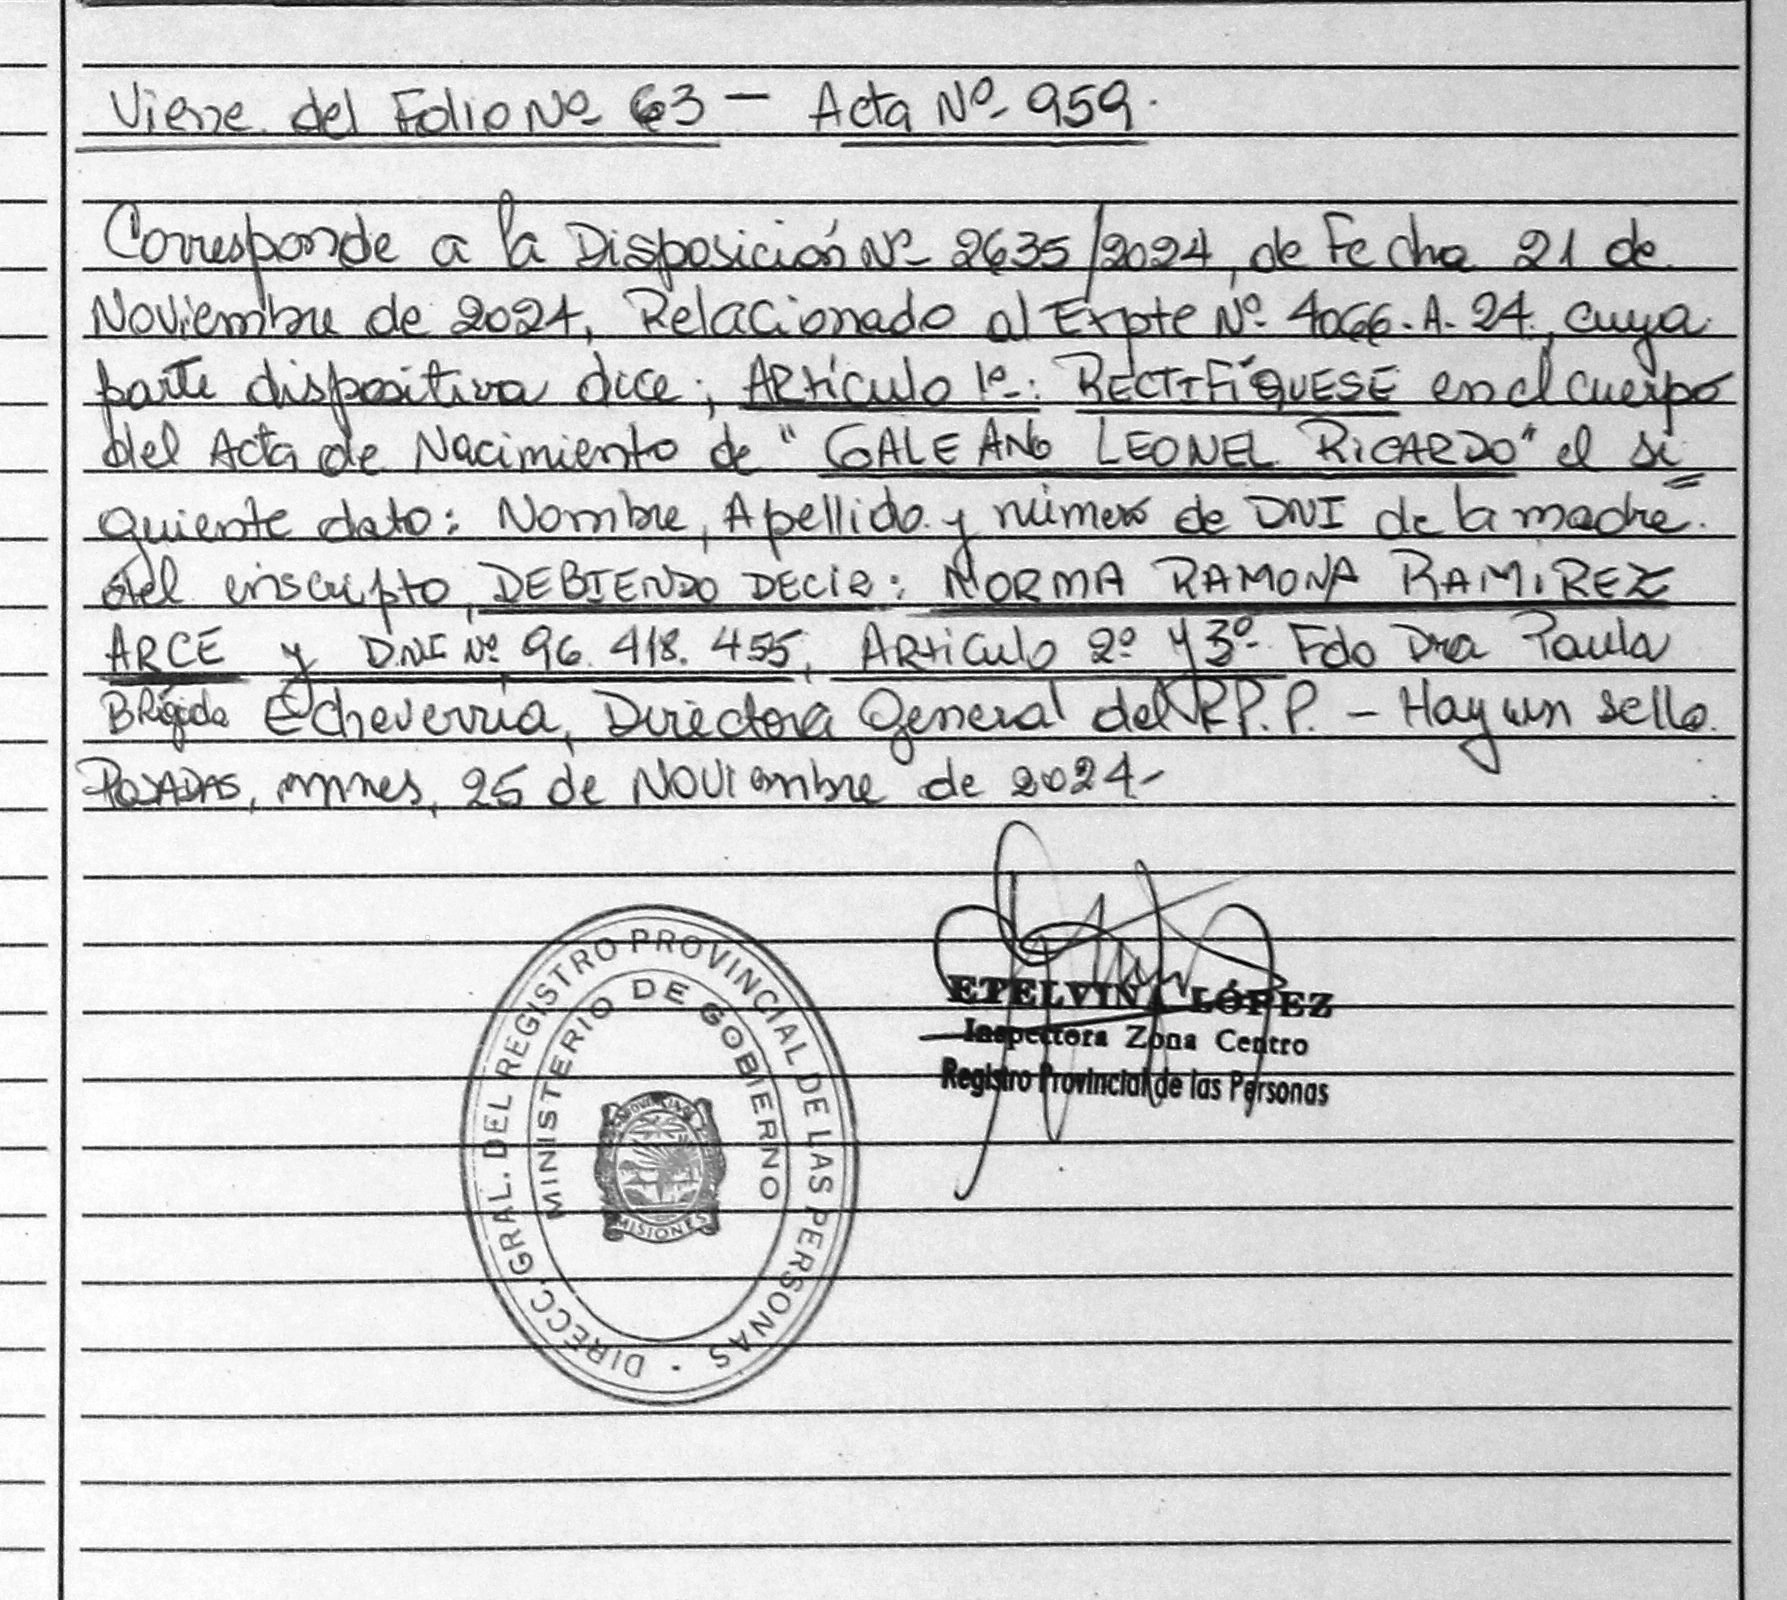 Viene del Folio Nº 63 — Acta Nº 959.
Corresponde a la Disposición Nº 2635/2024, de Fecha 21 de
Noviembre de 2024, Relacionado al Expte Nº 4066-A-24, cuya
parte dispositiva dice; ARtículo 1º: RECTIFÍQUESE en el cuerpo
del Acta de Nacimiento de "GALEANO LEONEL RICARDO" el si
guiente dato: Nombre, Apellido y número de DNI de la madre
del inscripto, DEBIENDO DECIR: NORMA RAMONA RAMIREZ
ARCE y DNI Nº 96.418.455, ARtículo 2º y 3º Fdo Dra Paula
Brígida Echeverria, Directora General del R.P.P. - Hay un sello.
POSADAS, mnes, 25 de NOViembre de 2024-
DIRECC. GRAL. DEL REGISTRO PROVINCIAL DE LAS PERSONAS
MINISTERIO DE GOBIERNO
PROVINCIA
MISIONES
ETELVINA LÓPEZ
Inspectora Zona Centro
Registro Provincial de las Personas